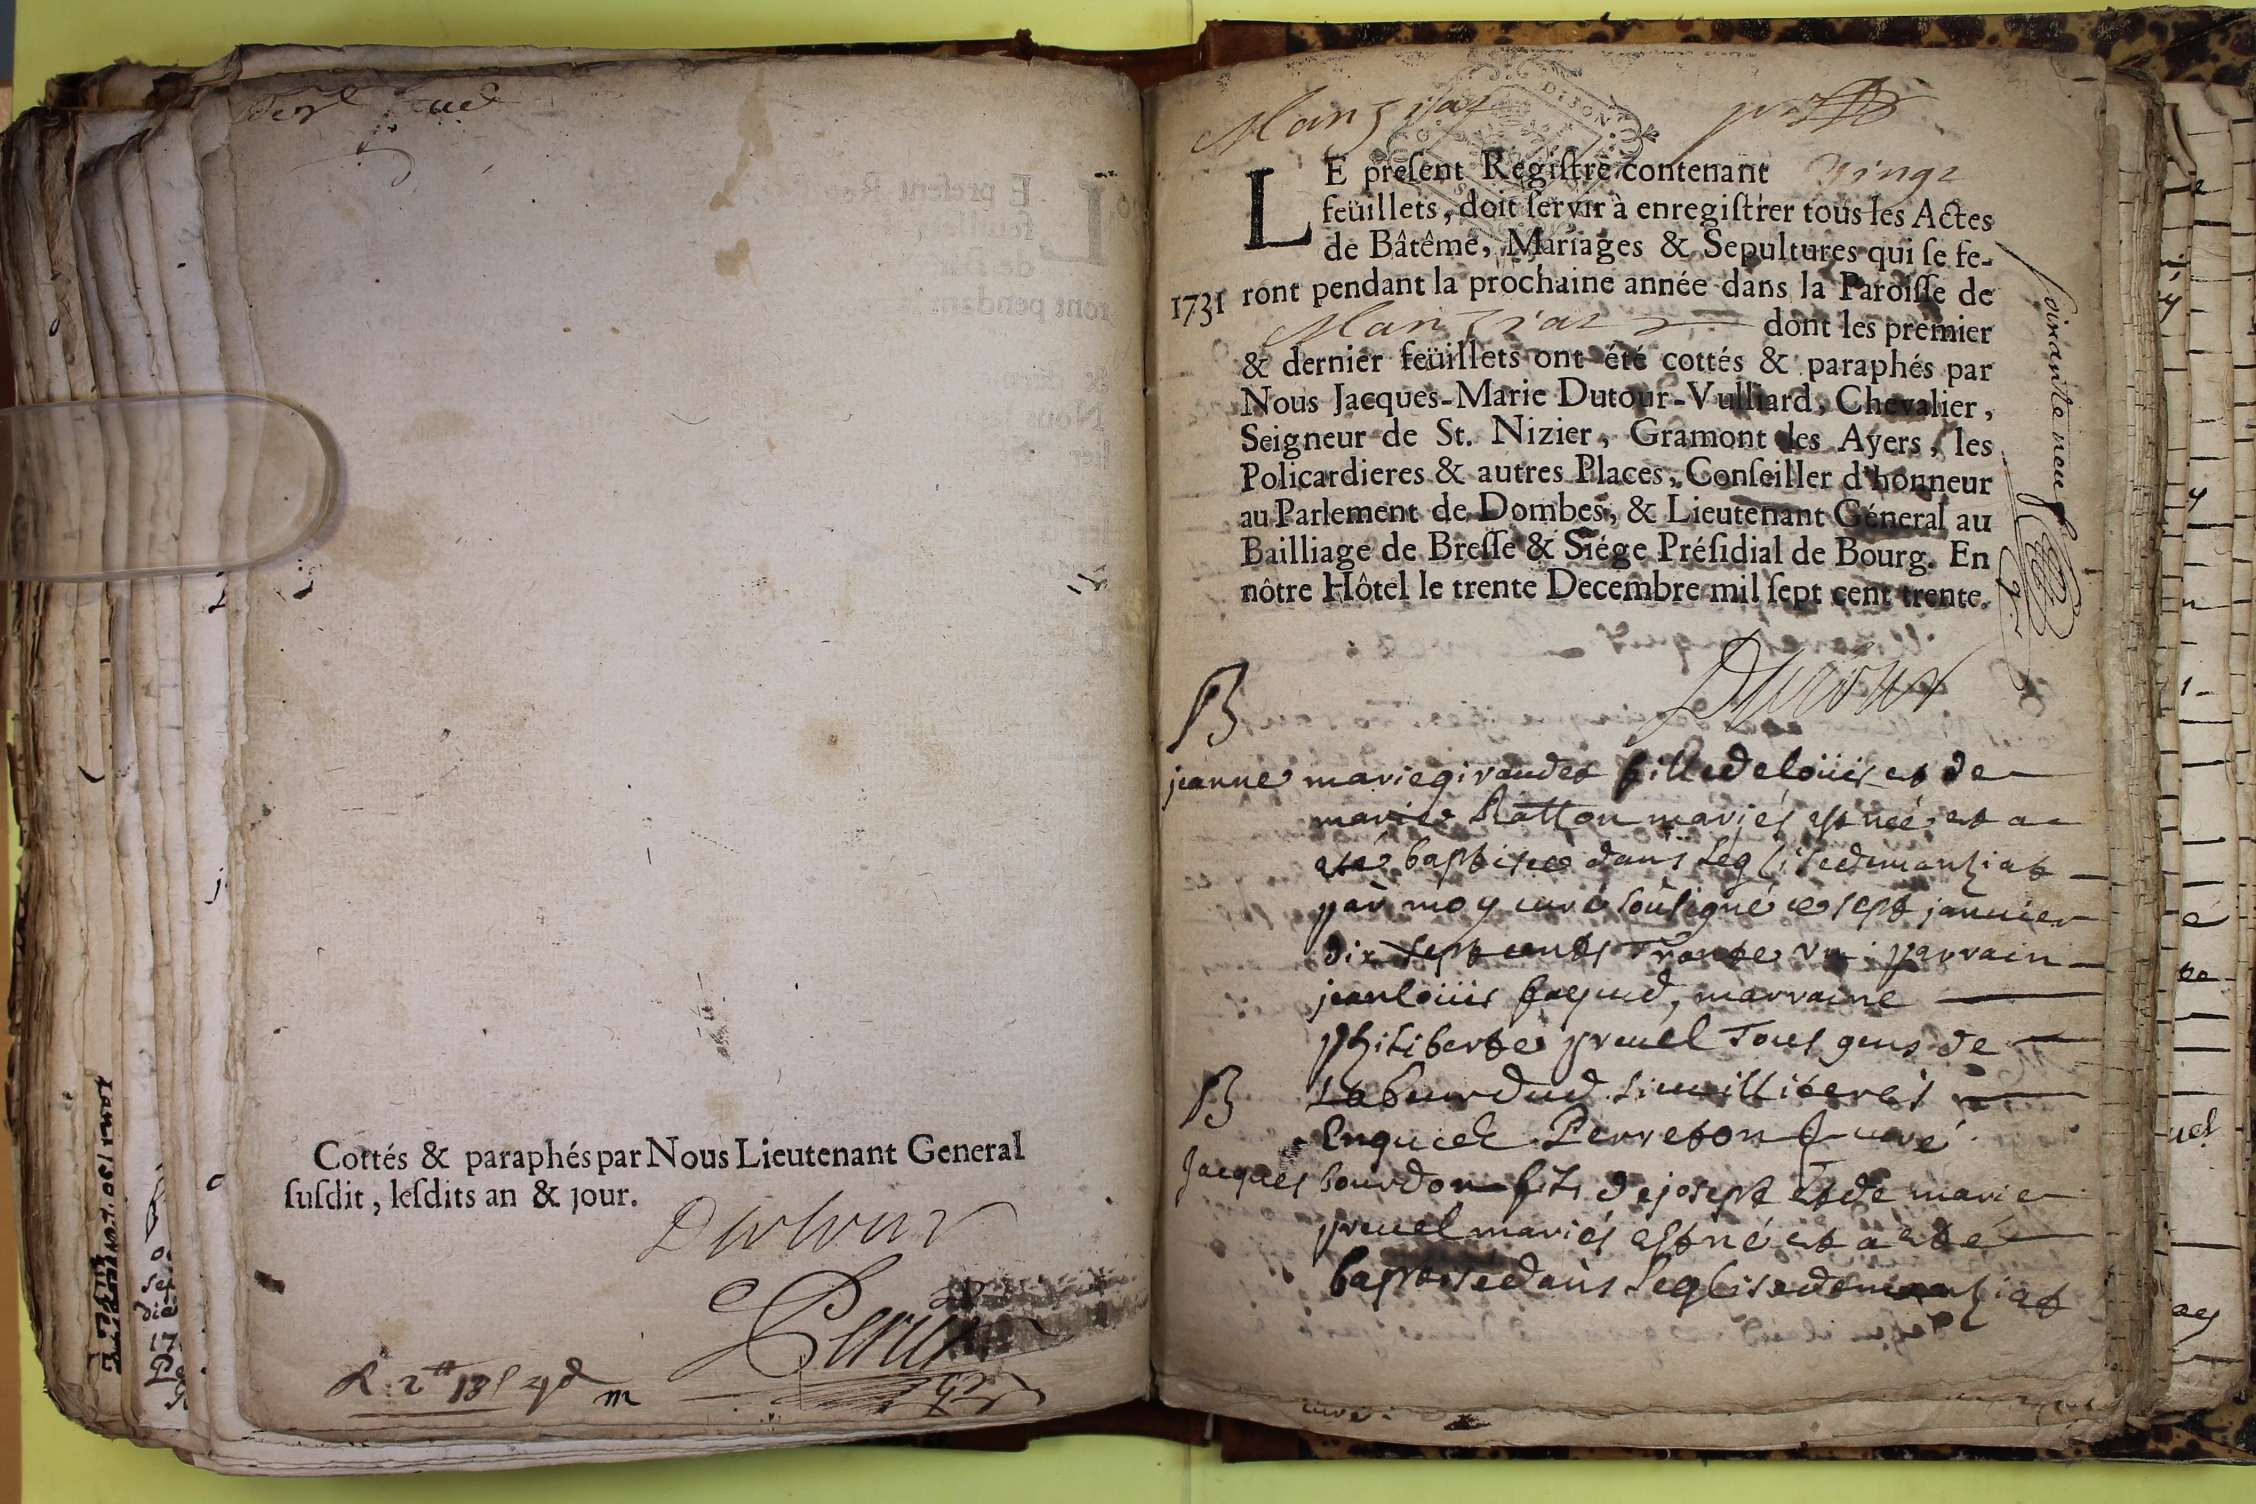 Cottés & paraphés par Nous Lieutenant General
ſuſdit, leſdits an & jour.
Dutour
Manziat
DIJON
LE preſent Regiſtre contenant vingt
feüillets, doit ſervir à enregiſtrer tous les Actes
de Bâtême, Mariages & Sepultures qui ſe fe-
1731 ront pendant la prochaine année dans la Paroiſſe de
Manziat dont les premier
& dernier feüillets ont été cottés & paraphés par
Nous Jacques-Marie Dutour-Vulliard, Chevalier,
Seigneur de St. Nizier, Gramont les Ayers, les
Policardieres & autres Places, Conſeiller d'honneur
au Parlement de Dombes, & Lieutenant Géneral au
Bailliage de Breſſe & Siége Préſidial de Bourg. En
nôtre Hôtel le trente Decembre mil ſept cent trente.
soixante neuf
Dutour
B
jeanne marie giraudet fille de loüis et de
marie Ratton mariés est née et a
eté baptisee dans leglise de manziat
par moy curé soûsigné ce sept janvier
dix sept cents trante un parrain
jean loüis fayud, marraine
philiberte preuel tous gens de
labeur dud. lieu illiterés
Perreton curé
B
Jacques bourdon fils de joseph et de marie
preuel mariés est né et a eté
baptisé dans leglise de manziat